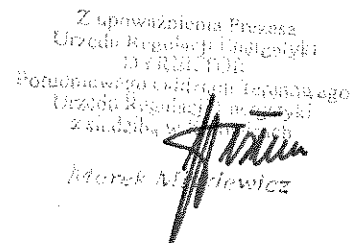 Z upoważnienia Prezesa
Urzędu Regulacji Energetyki
DYREKTOR
Południowego Oddziału Terenowego
Urzędu Regulacji Energetyki
z siedzibą w
Marek